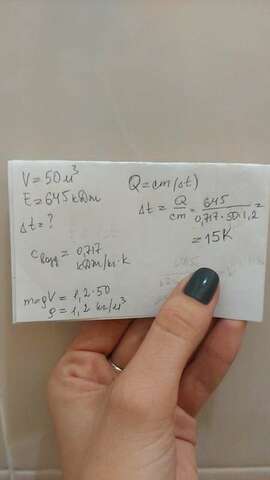 V = 50 м³
E = 645 кДж
Δt = ?
Cвозд = 0,717
кДж/кг·К
m = ρV = 1,2·50
ρ = 1,2 кг/м³
Q = cm(Δt)
Δt = Q/cm = 645/0,717·50·1,2 =
= 15K